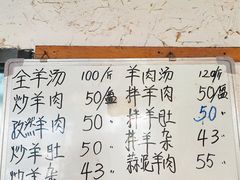 全羊汤 100/斤 羊肉汤 120/斤
炒羊肉 50/盘 拌羊肉 50/盘
孜然羊肉 50〃 拌羊肚 50〃
炒羊肚 50〃 拌羊杂 43〃
炒羊杂 43〃 蒜泥羊肉 55〃